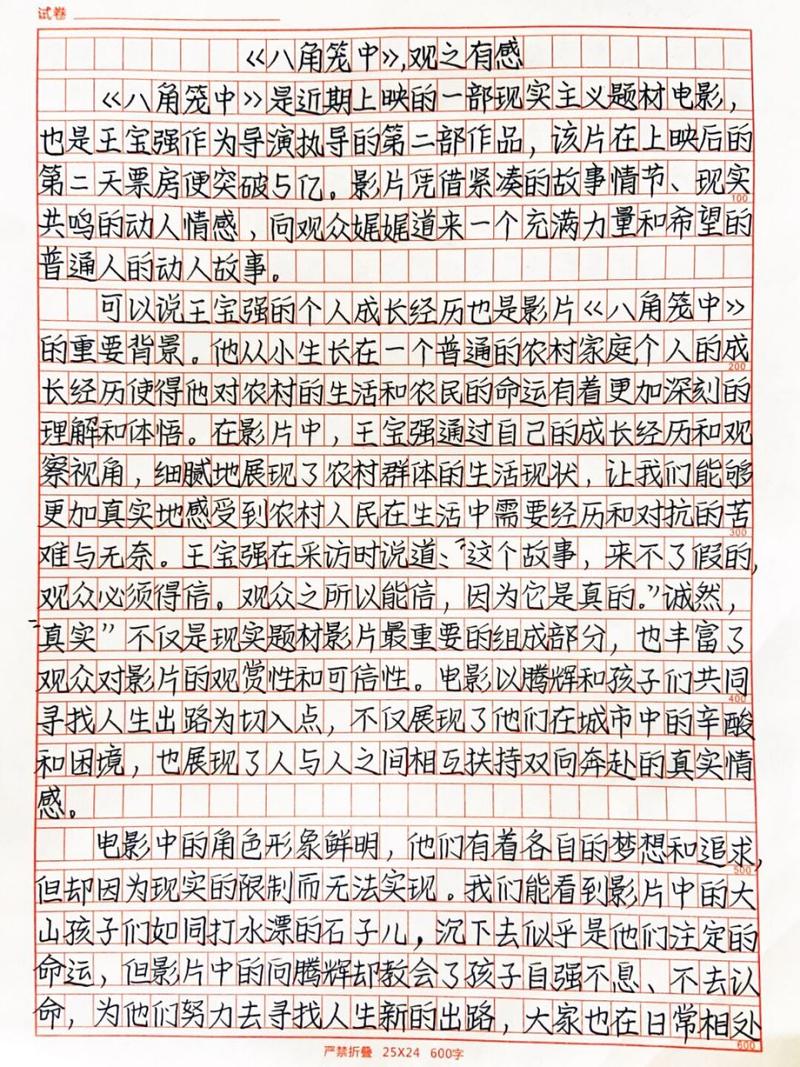 试卷
《八角笼中》,观之有感
《八角笼中》是近期上映的一部现实主义题材电影,
也是王宝强作为导演执导的第二部作品,该片在上映后的
第二天票房便突破5亿。影片凭借紧凑的故事情节、现实
100
共鸣的动人情感,向观众娓娓道来一个充满力量和希望的
普通人的动人故事。
可以说王宝强的个人成长经历也是影片《八角笼中》
的重要背景。他从小生长在一个普通的农村家庭个人的成
200
长经历使得他对农村的生活和农民的命运有着更加深刻的
理解和体悟。在影片中,王宝强通过自己的成长经历和观
察视角,细腻地展现了农村群体的生活现状,让我们能够
更加真实地感受到农村人民在生活中需要经历和对抗的苦
300
难与无奈。王宝强在采访时说道:“这个故事,来不了假的,
观众必须得信。观众之所以能信,因为它是真的。”诚然,
“真实”不仅是现实题材影片最重要的组成部分,也丰富了
观众对影片的观赏性和可信性。电影以腾辉和孩子们共同
400
寻找人生出路为切入点,不仅展现了他们在城市中的辛酸
和困境,也展现了人与人之间相互扶持双向奔赴的真实情
感。
电影中的角色形象鲜明,他们有着各自的梦想和追求,
500
但却因为现实的限制而无法实现。我们能看到影片中的大
山孩子们如同打水漂的石子儿,沉下去似乎是他们注定的
命运,但影片中的向腾辉却教会了孩子自强不息、不去认
命,为他们努力去寻找人生新的出路,大家也在日常相处
600
严禁折叠 25X24 600字